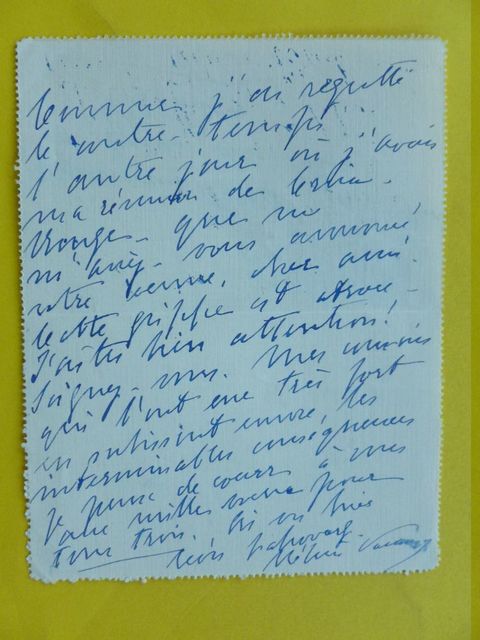 Comme j'ai regretté
le contre-temps
l'autre jour où j'avais
ma réunion de Croix-
Rouge. que ne
m'aviez-vous annoncé
votre venue, cher ami.
Cette grippe est atroce -
Faites bien attention!
Soignez-vous. Mes amies
qui l'ont eue très fort
en subissent encore, les
interminables conséquences
Je pense de cœur à vous
Mille vœux pour
tous trois.